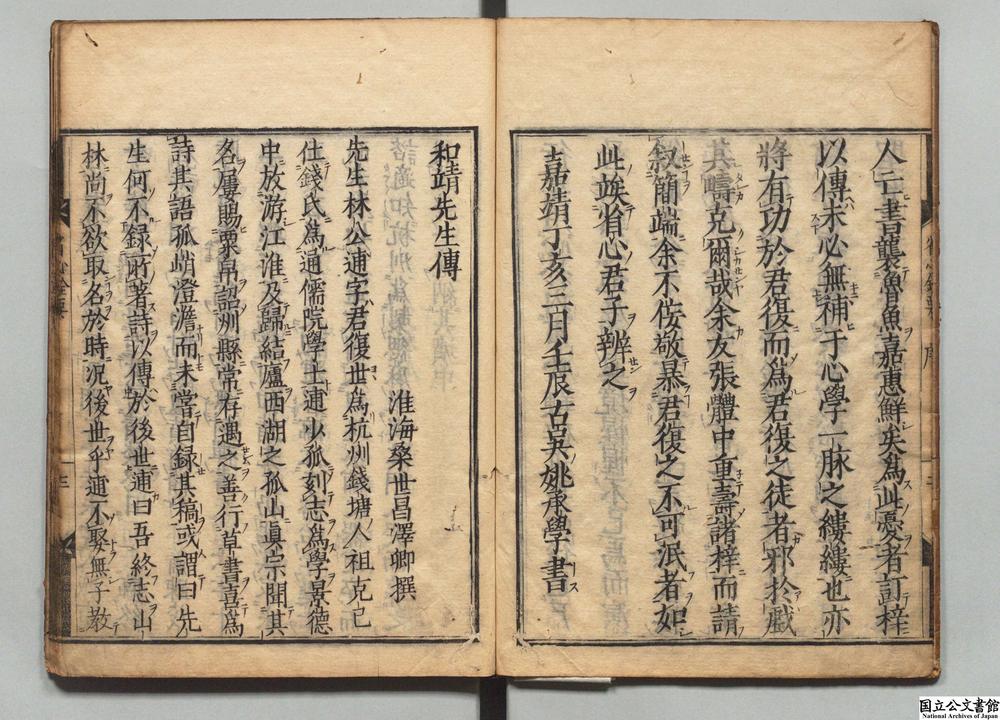 人亡書襲魯魚嘉惠鮮矣為此憂者訂梓
以傳未必無補于心學一脉之縷縷也亦
將有功於君復而為君復之徒者邪於戲
其疇克爾哉余友張體中重壽諸梓而請
叙簡端余不佞敬慕君復之不可泯者如
此竢省心君子辨之
嘉靖丁亥三月壬辰古吳姚承學書
和靖先生傳
淮海桑世昌澤卿撰
先生林公逋字君復世為杭州錢塘人祖克已
仕錢氏為通儒院學士逋少孤刻志為學景德
中放游江淮及歸結廬西湖之孤山真宗聞其
名屢賜粟帛詔州縣常存遇之善行草書喜為
詩其語孤峭澄澹而未嘗自録其稿或謂曰先
生何不録所著詩以傳於後世逋曰吾終志山
林尚不欲取名於時况後世乎逋不娶無子教
国立公文書館
National Archives of Japan